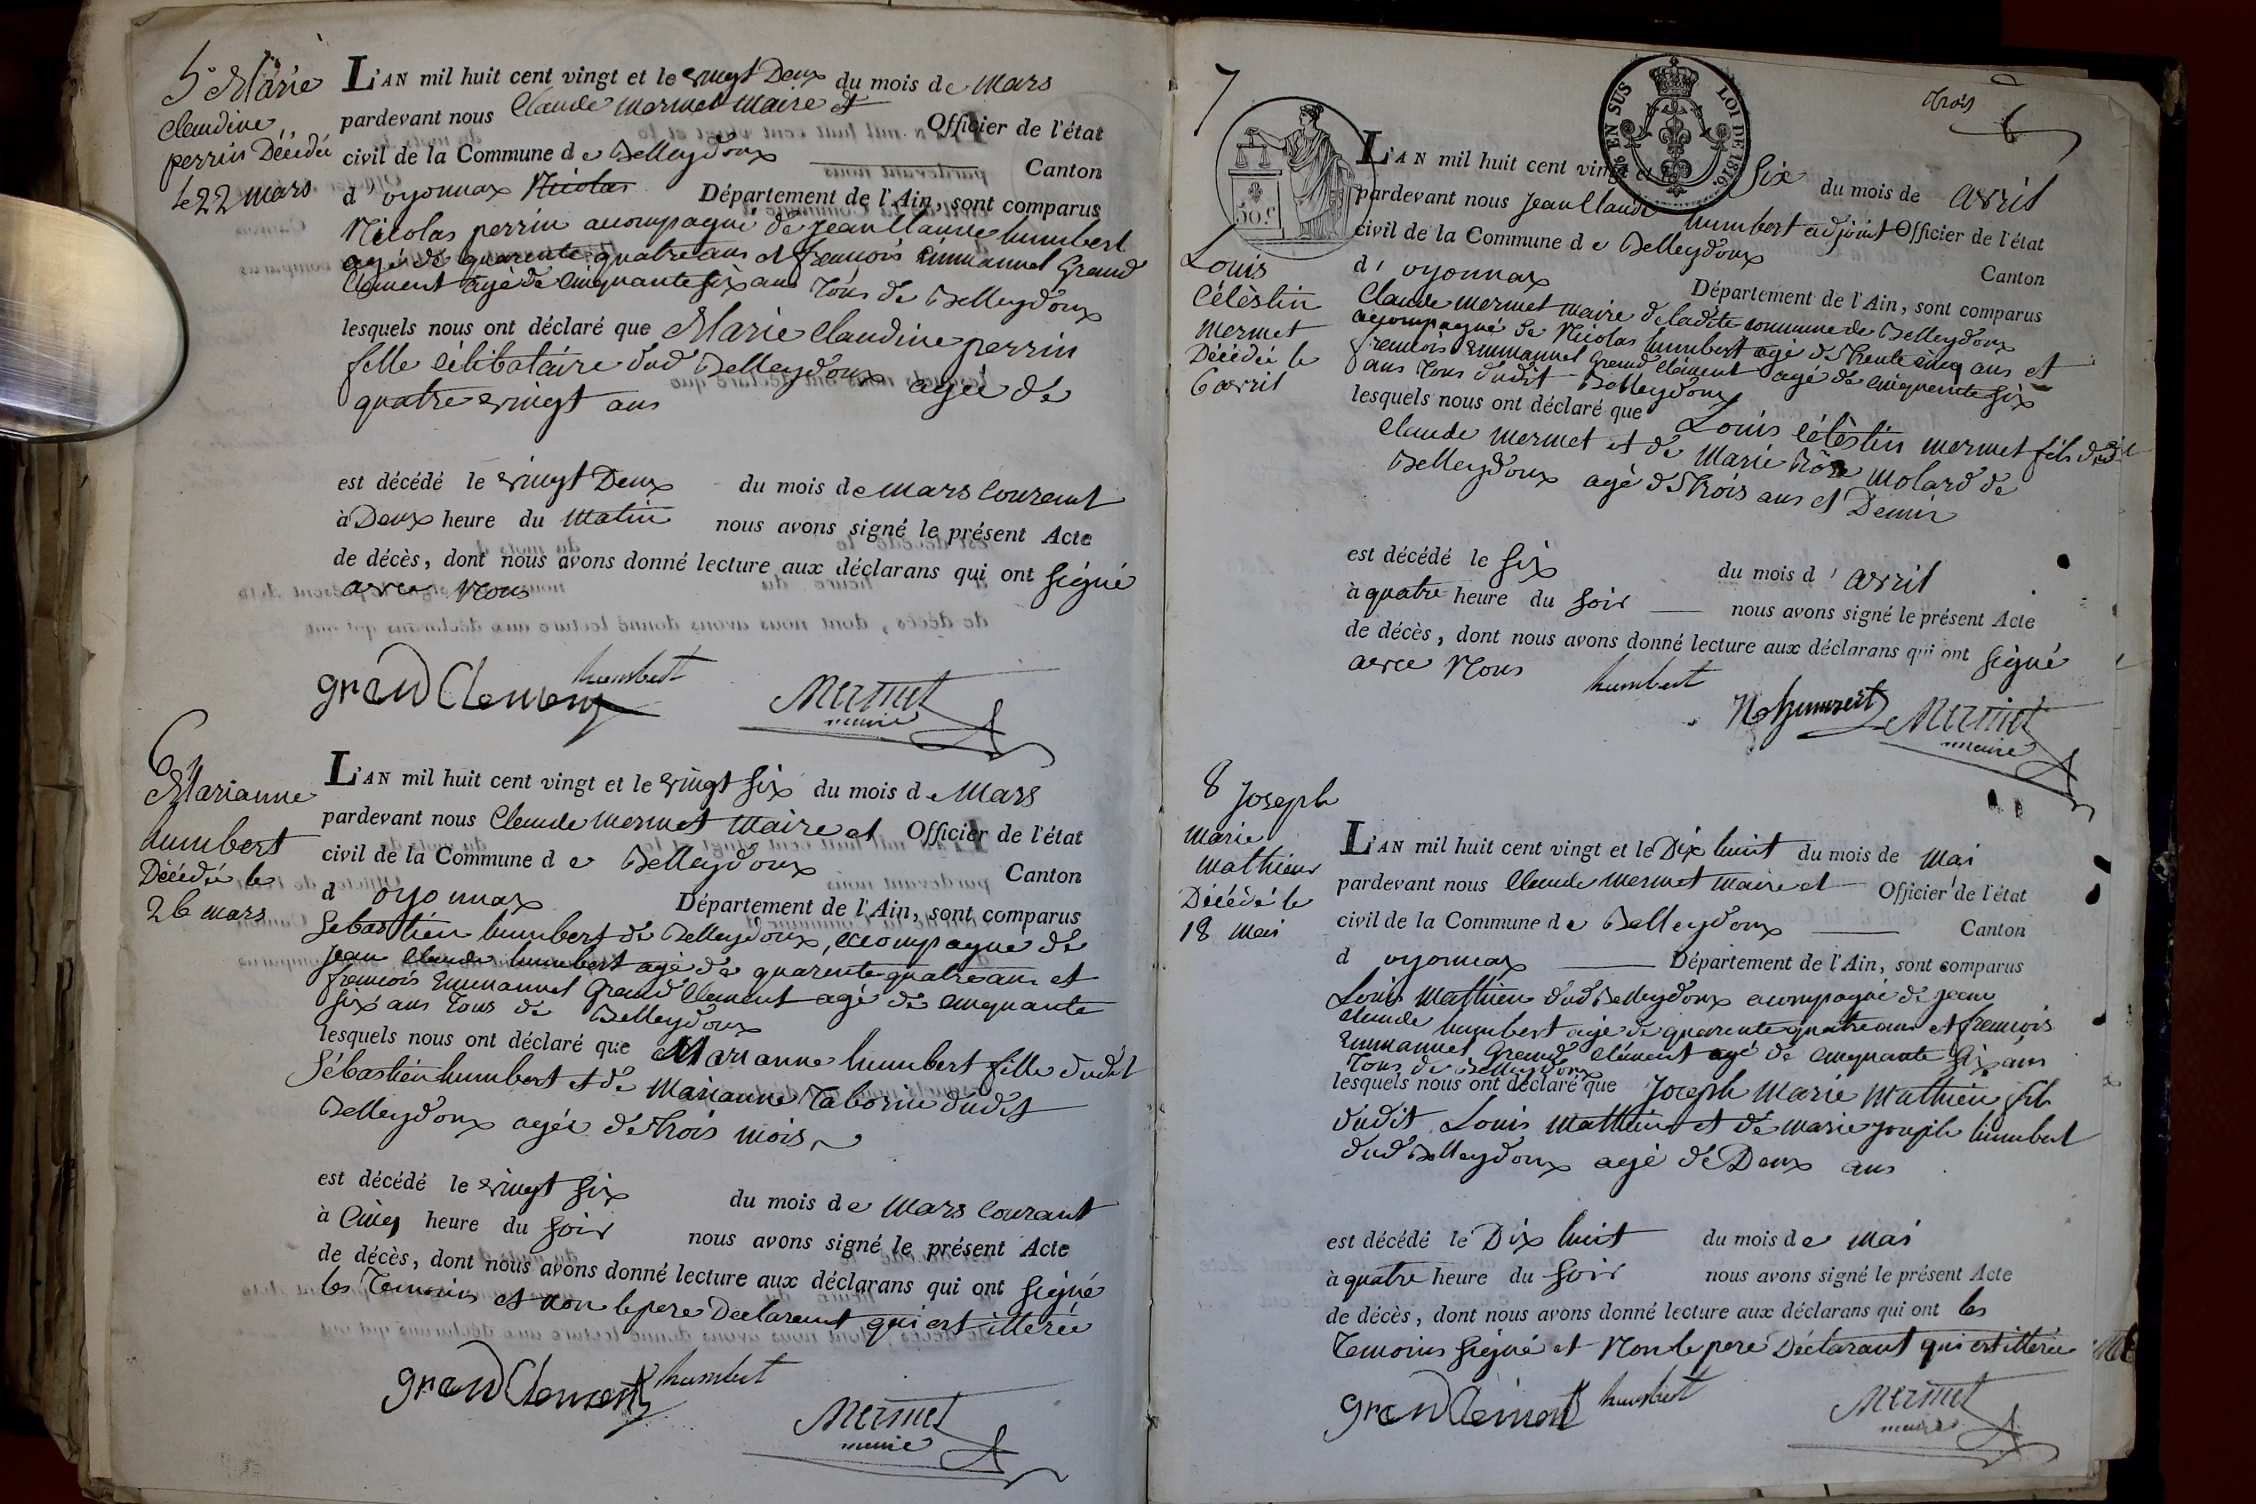 5° Marie
Claudine
perrin Décédée
le 22 mars
L'AN mil huit cent vingt et le vingt Deux du mois de Mars
pardevant nous Claude Mermet Maire et Officier de l'état
civil de la Commune de Belleydoux Canton
d'oyonnax Nicolas Département de l'Ain, sont comparus
Nicolas perrin acompagné de Jean Claude humbert
agé de quarente quatre ans et françois Emmanuel Grand
Clément agé de Cinquante six ans Tous de Belleydoux
lesquels nous ont déclaré que Marie Claudine perrin
fille célibataire dud Belleydoux agée de
quatre vingt ans
est décédé le vingt Deux du mois de Mars Courant
à Deux heure du Matin nous avons signé le présent Acte
de décès, dont nous avons donné lecture aux déclarans qui ont signé
avec Nous
grand Clement humbert Mermet
maire
6
Marianne
humbert
Décédée le
26 mars
L'AN mil huit cent vingt et le vingt six du mois de Mars
pardevant nous Claude Mermet Maire et Officier de l'état
civil de la Commune de Belleydoux Canton
d oyonnax Département de l'Ain, sont comparus
Sebastien humbert de Belleydoux, acompagne de
Jean Claude humbert agé de quarente quatre ans et
françois Emmanuel Grand Clement agé de cinquante
six ans Tous de Belleydoux
lesquels nous ont déclaré que Marianne humbert fille dudit
Sébastien humbert et de Marianne Taborin dudit
Belleydoux agée de Trois mois
est décédé le vingt six du mois de Mars Courant
à Cinq heure du soir nous avons signé le présent Acte
de décès, dont nous avons donné lecture aux déclarans qui ont signé
les Temoins et non le pere Declarant qui est illeree
grand Clement humbert
Mermet
maire
Trois
6
7
EN SUS LOI DE 1816
50c
Louis
Célèstin
Mermet
Décédée le
6 avril
L'AN mil huit cent vingt et le Six du mois de avril
pardevant nous Jean Claude humbert adjoint Officier de l'état
civil de la Commune de Belleydoux Canton
d'oyonnax Département de l'Ain, sont comparus
Claude Mermet Maire de ladite commune de Belleydoux
acompagné de Nicolas humbert agé de Trente cinq ans et
françois Emmanuel Grand Clément agé de cinquente six
ans Tous dudit Belleydoux
lesquels nous ont déclaré que Louis Célèstin Mermet fils dudit
Claude Mermet et de Marie Rôse Molard de
Belleydoux agé de Trois ans et Demis
est décédé le Six du mois d'avril
à quatre heure du soir nous avons signé le présent Acte
de décès, dont nous avons donné lecture aux déclarans qui ont signé
avec Nous humbert
N humbert Mermet
maire
8 Joseph
Marie
Mathieu
Décédé le
18 Mai
L'AN mil huit cent vingt et le Dix huit du mois de Mai
pardevant nous Claude Mermet Maire et Officier de l'état
civil de la Commune de Belleydoux Canton
d oyonnax Département de l'Ain, sont comparus
Louis Mathieu dud Belleydoux acompagné de Jean
Claude humbert agé de quarente quatre ans et francois
Emmanuel Grand Clément agé de cinquante Six ans
Tous de Belleydoux
lesquels nous ont déclaré que Joseph Marie Mathieu fils
dudit Louis Mathieu et de marie joseph humbert
dud Belleydoux agé de Deux ans
est décédé le Dix huit du mois de Mai
à quatre heure du soir nous avons signé le présent Acte
de décès, dont nous avons donné lecture aux déclarans qui ont les
Temoins signé et Non le pere Déclarant qui est illeree
grand Clément humbert Mermet
maire